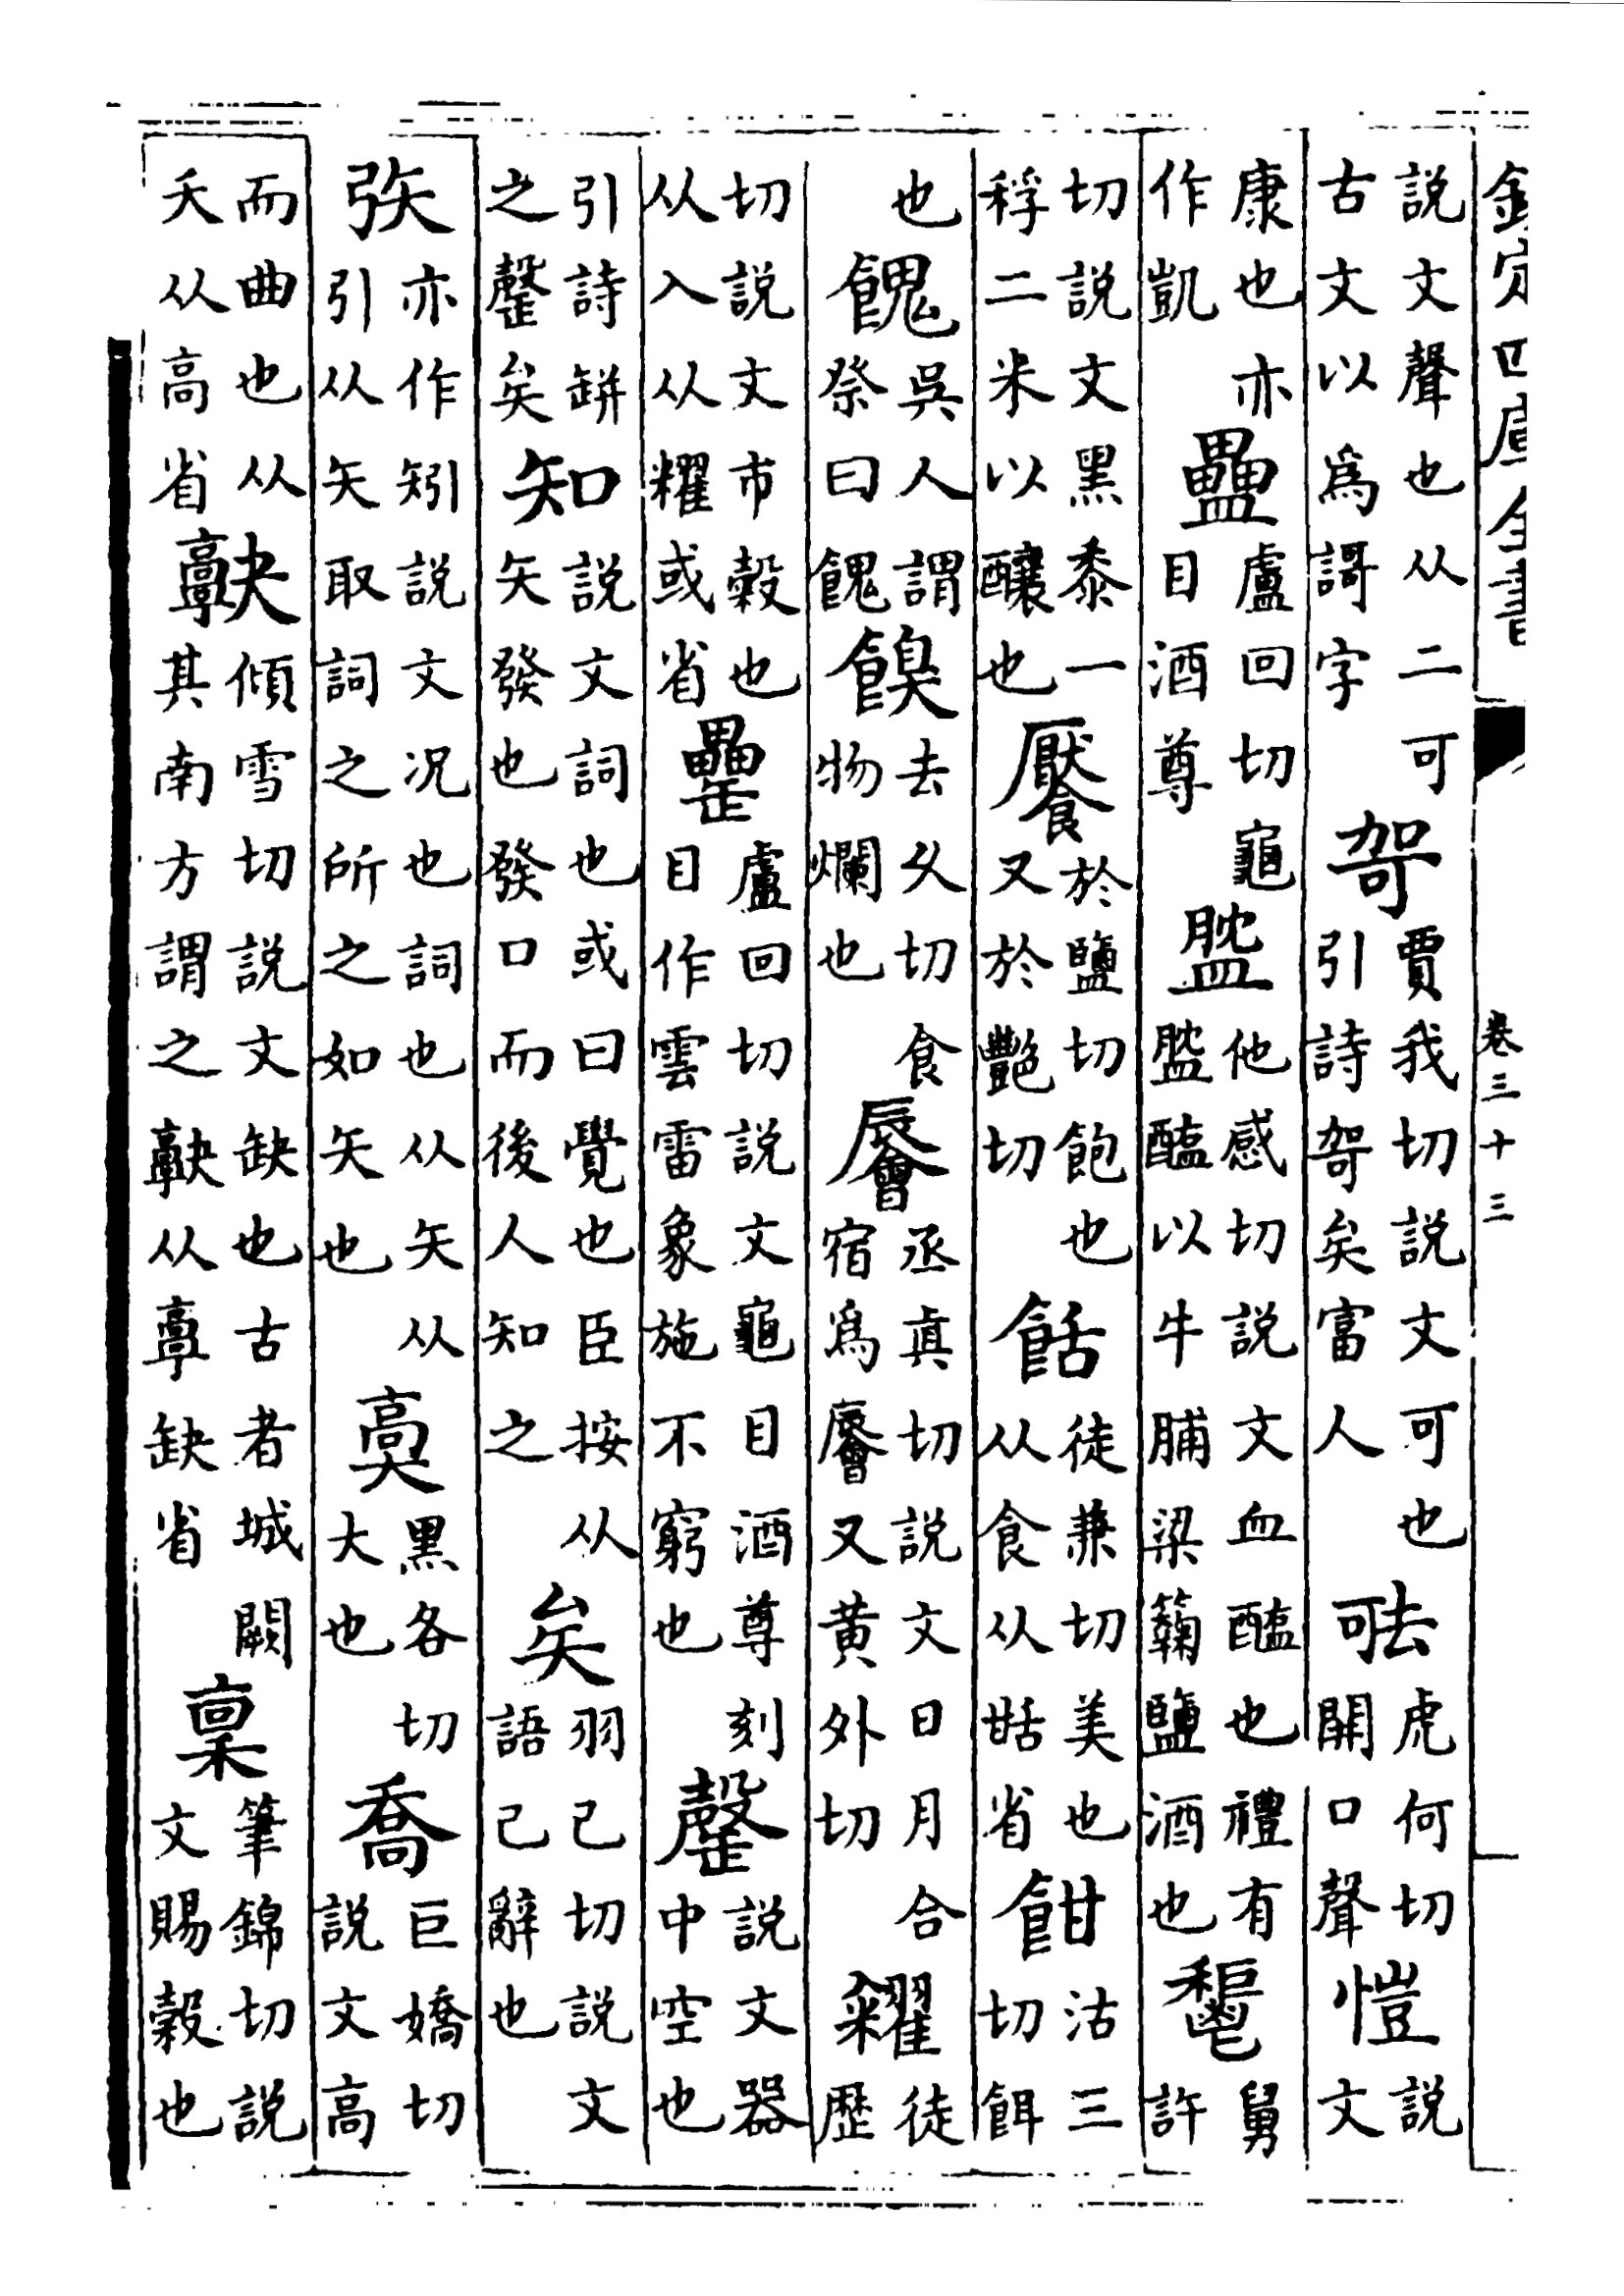 欽定四庫全書 卷三十三
説文聲也从二可古文以爲謌字 哿 賈我切説文可也引詩哿矣富人 虎何切開口聲 愷 説文
康也亦作凱 盧回切龜目酒尊 䘓 他感切説文血醢也禮有䘓醢以牛脯梁䕮鹽酒也 舅許
切説文黑黍一稃二米以釀也 饜 於鹽切飽也又於艷切 餂 徒兼切美也从食从甛省 沽三切餌
也 餽 吳人謂祭曰餽 去久切食物爛也 丞真切説文日月合宿爲又黄外切 糴 徒歴
切説文市穀也从入从糶或省 罍 盧回切説文龜目酒尊刻目作雲雷象施不窮也 罄 説文器中空也
引詩缾之罄矣 知 説文詞也或曰覺也臣按从矢發也發口而後人知之 矣 羽已切説文語己辭也
㢧 亦作矧説文况也詞也从矢从引从矢取詞之所之如矢也 黑各切大也 喬 巨嬌切説文高
而曲也从夭从高省 傾雪切説文缺也古者城闕其南方謂之从缺省 稟 筆錦切説文賜穀也